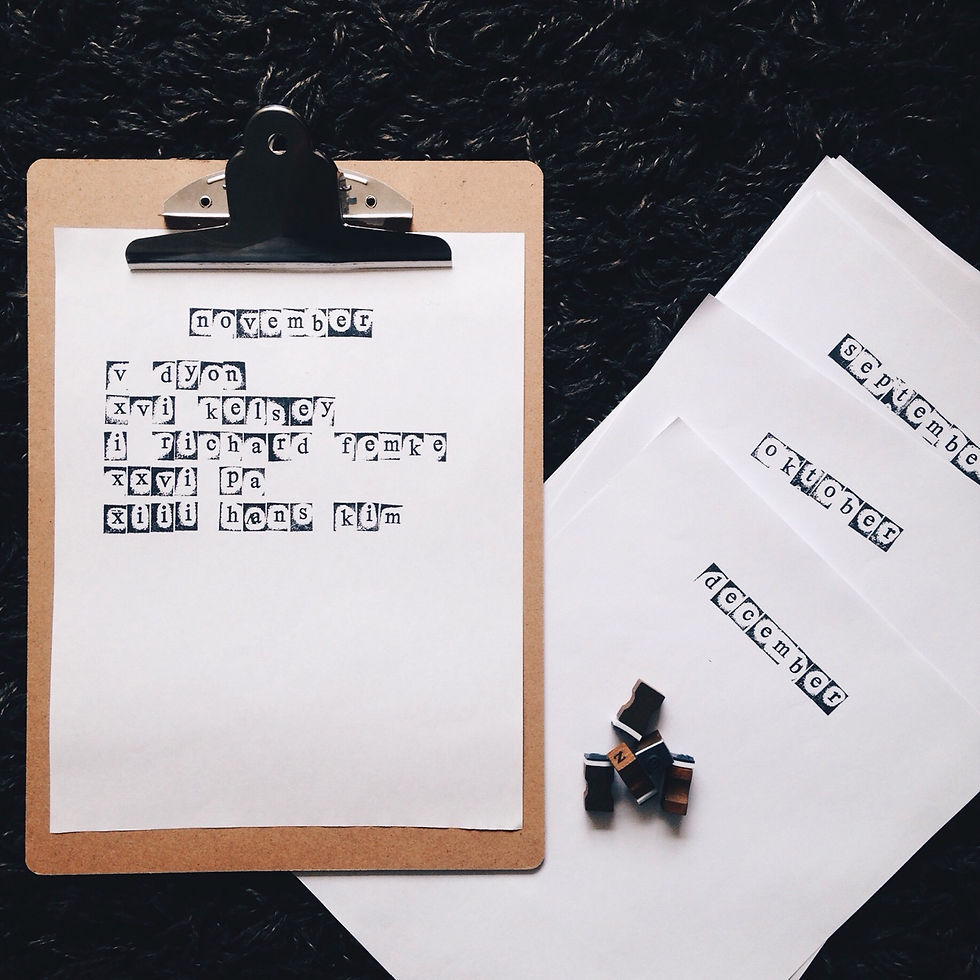 november
v dyon
xvi kelsey
i richard femke
xxvi pa
xiii hans kim
september
oktober
december
N